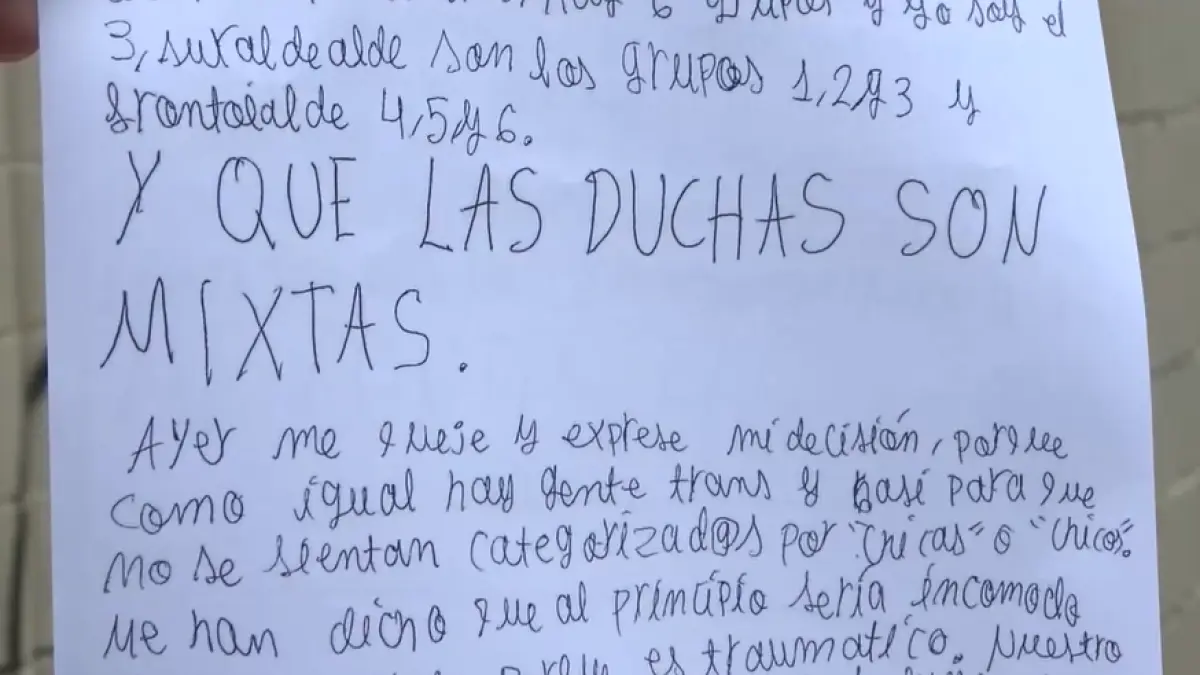 6 grupos y yo soy el
3, suraldealde son los grupos 1,2y3 y
frontoialde 4,5y6.
Y QUE LAS DUCHAS SON
MIXTAS.
Ayer me queje y exprese mi decisión, porque
como igual hay gente trans y basi para que
no se sientan categorizad@s por "chicas" o "chicos".
Me han dicho que al principio sería incomodo
es traumatico. Nuestro